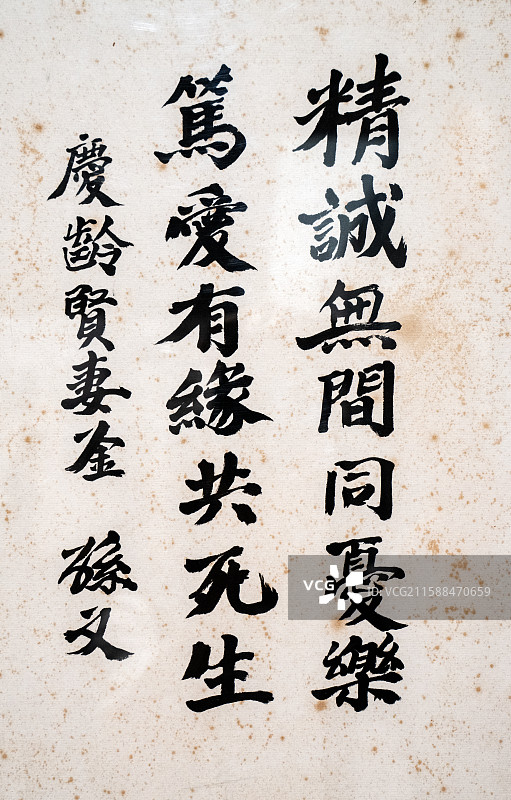 精誠無間同憂樂
篤愛有緣共死生
慶齡賢妻鉴 孫文
VCG
ID:VCG211588470659